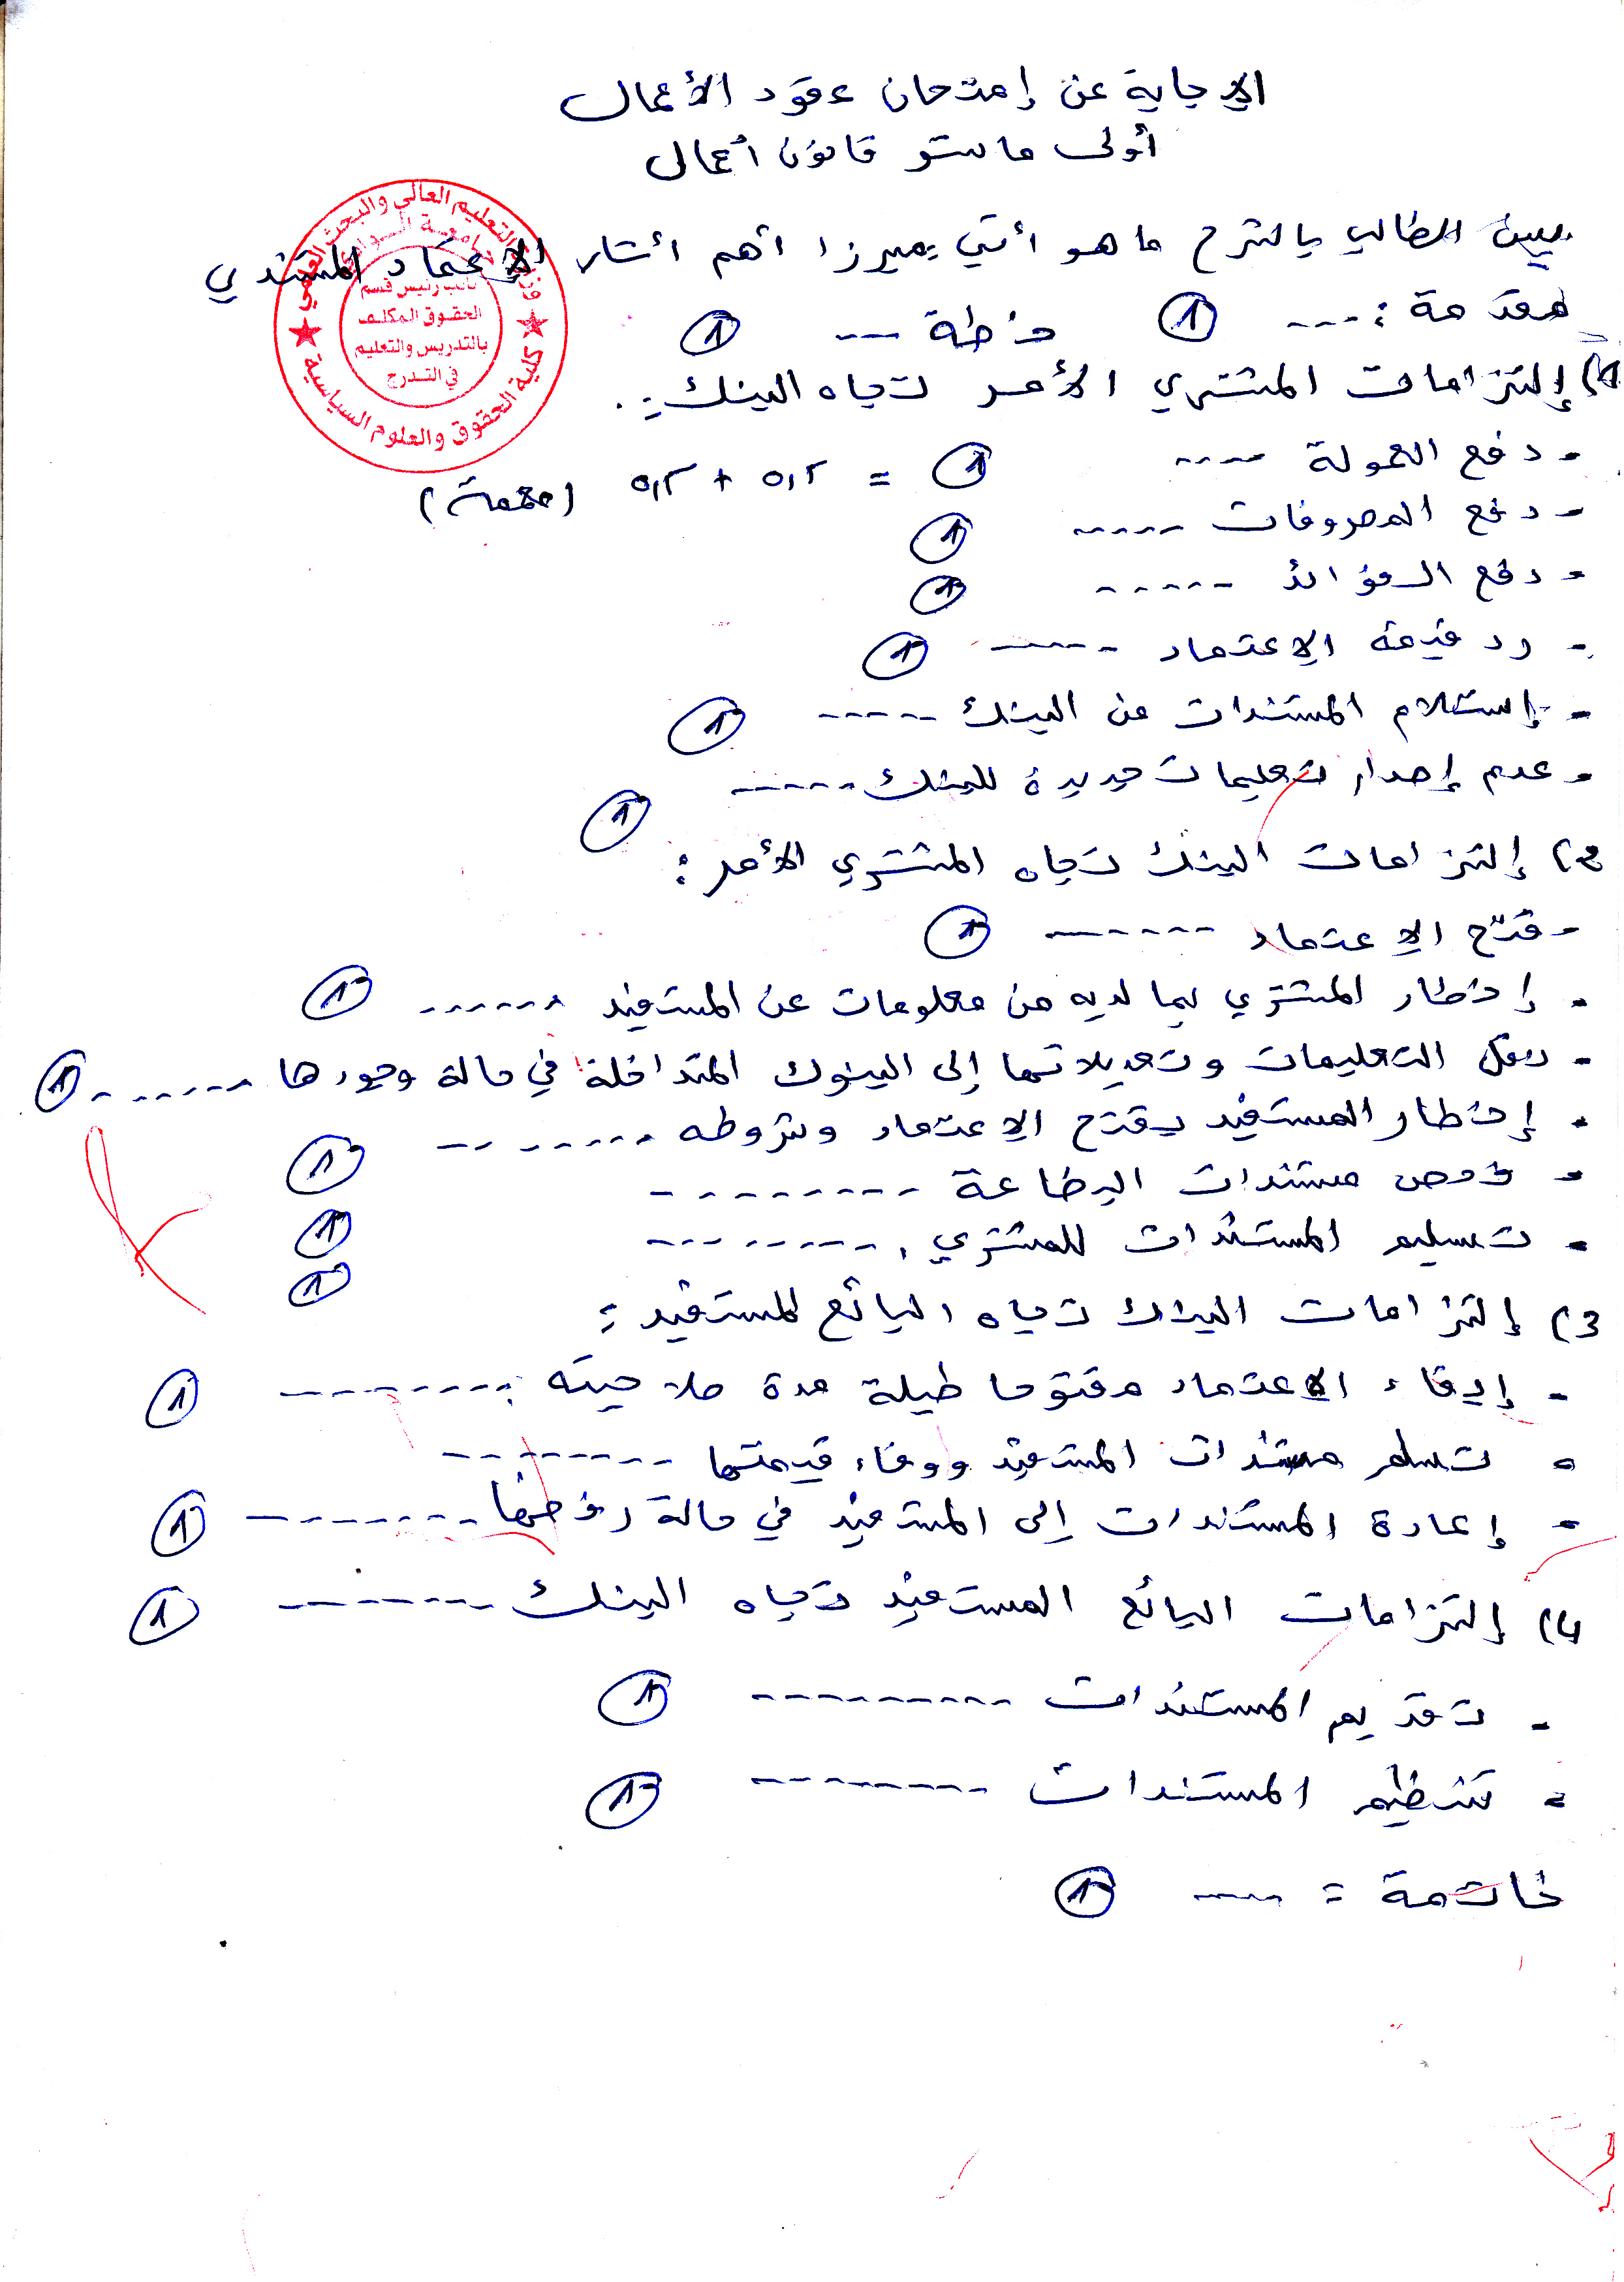 الإجابة عن إمتحان عقود الأعمال
أولى ماستر قانون أعمال
يبين الطالب بالشرح ما هو آتي مبرزا أهم أثار الإعتماد المستندي
وزارة التعليم العالي والبحث العلمي
جامعة الوادي
نائب رئيس قسم
الحقوق المكلف
بالتدريس والتعليم
في التدرج
كلية الحقوق والعلوم السياسية
مقدمة : --- 1 خطة --- 1
1) إلتزامات المشتري الأمر تجاه البنك :
- دفع العمولة ---- 1 = 0,5 + 0,5
- دفع المصروفات ----- 1
- دفع الفوائد ----- 1
- رد قيمة الإعتماد ----- 1
- إستلام المستندات من البنك ----- 1
- عدم إصدار تعليمات جديدة للبنك ----- 1
2) إلتزامات البنك تجاه المشتري الأمر :
- فتح الإعتماد ------ 1
- إخطار المشتري بما لديه من معلومات عن المستفيد ------ 1
- نقل التعليمات وتعديلاتها إلى البنوك المتداخلة في حالة وجودها ------- 1
- إخطار المستفيد بفتح الإعتماد وشروطه -------- 1
- فحص مستندات البضاعة --------- 1
- تسليم المستندات للمشتري --------- 1
3) إلتزامات البنك تجاه البائع المستفيد :
- إبقاء الاعتماد مفتوحا طيلة مدة صلاحيته --------- 1
- تسلم مستندات المستفيد ووفاء قيمتها ---------
- إعادة المستندات إلى المستفيد في حالة رفضها -------- 1
4) إلتزامات البائع المستفيد تجاه البنك -------- 1
- تقديم المستندات ---------- 1
- تنظيم المستندات --------- 1
خاتمة : ---- 1